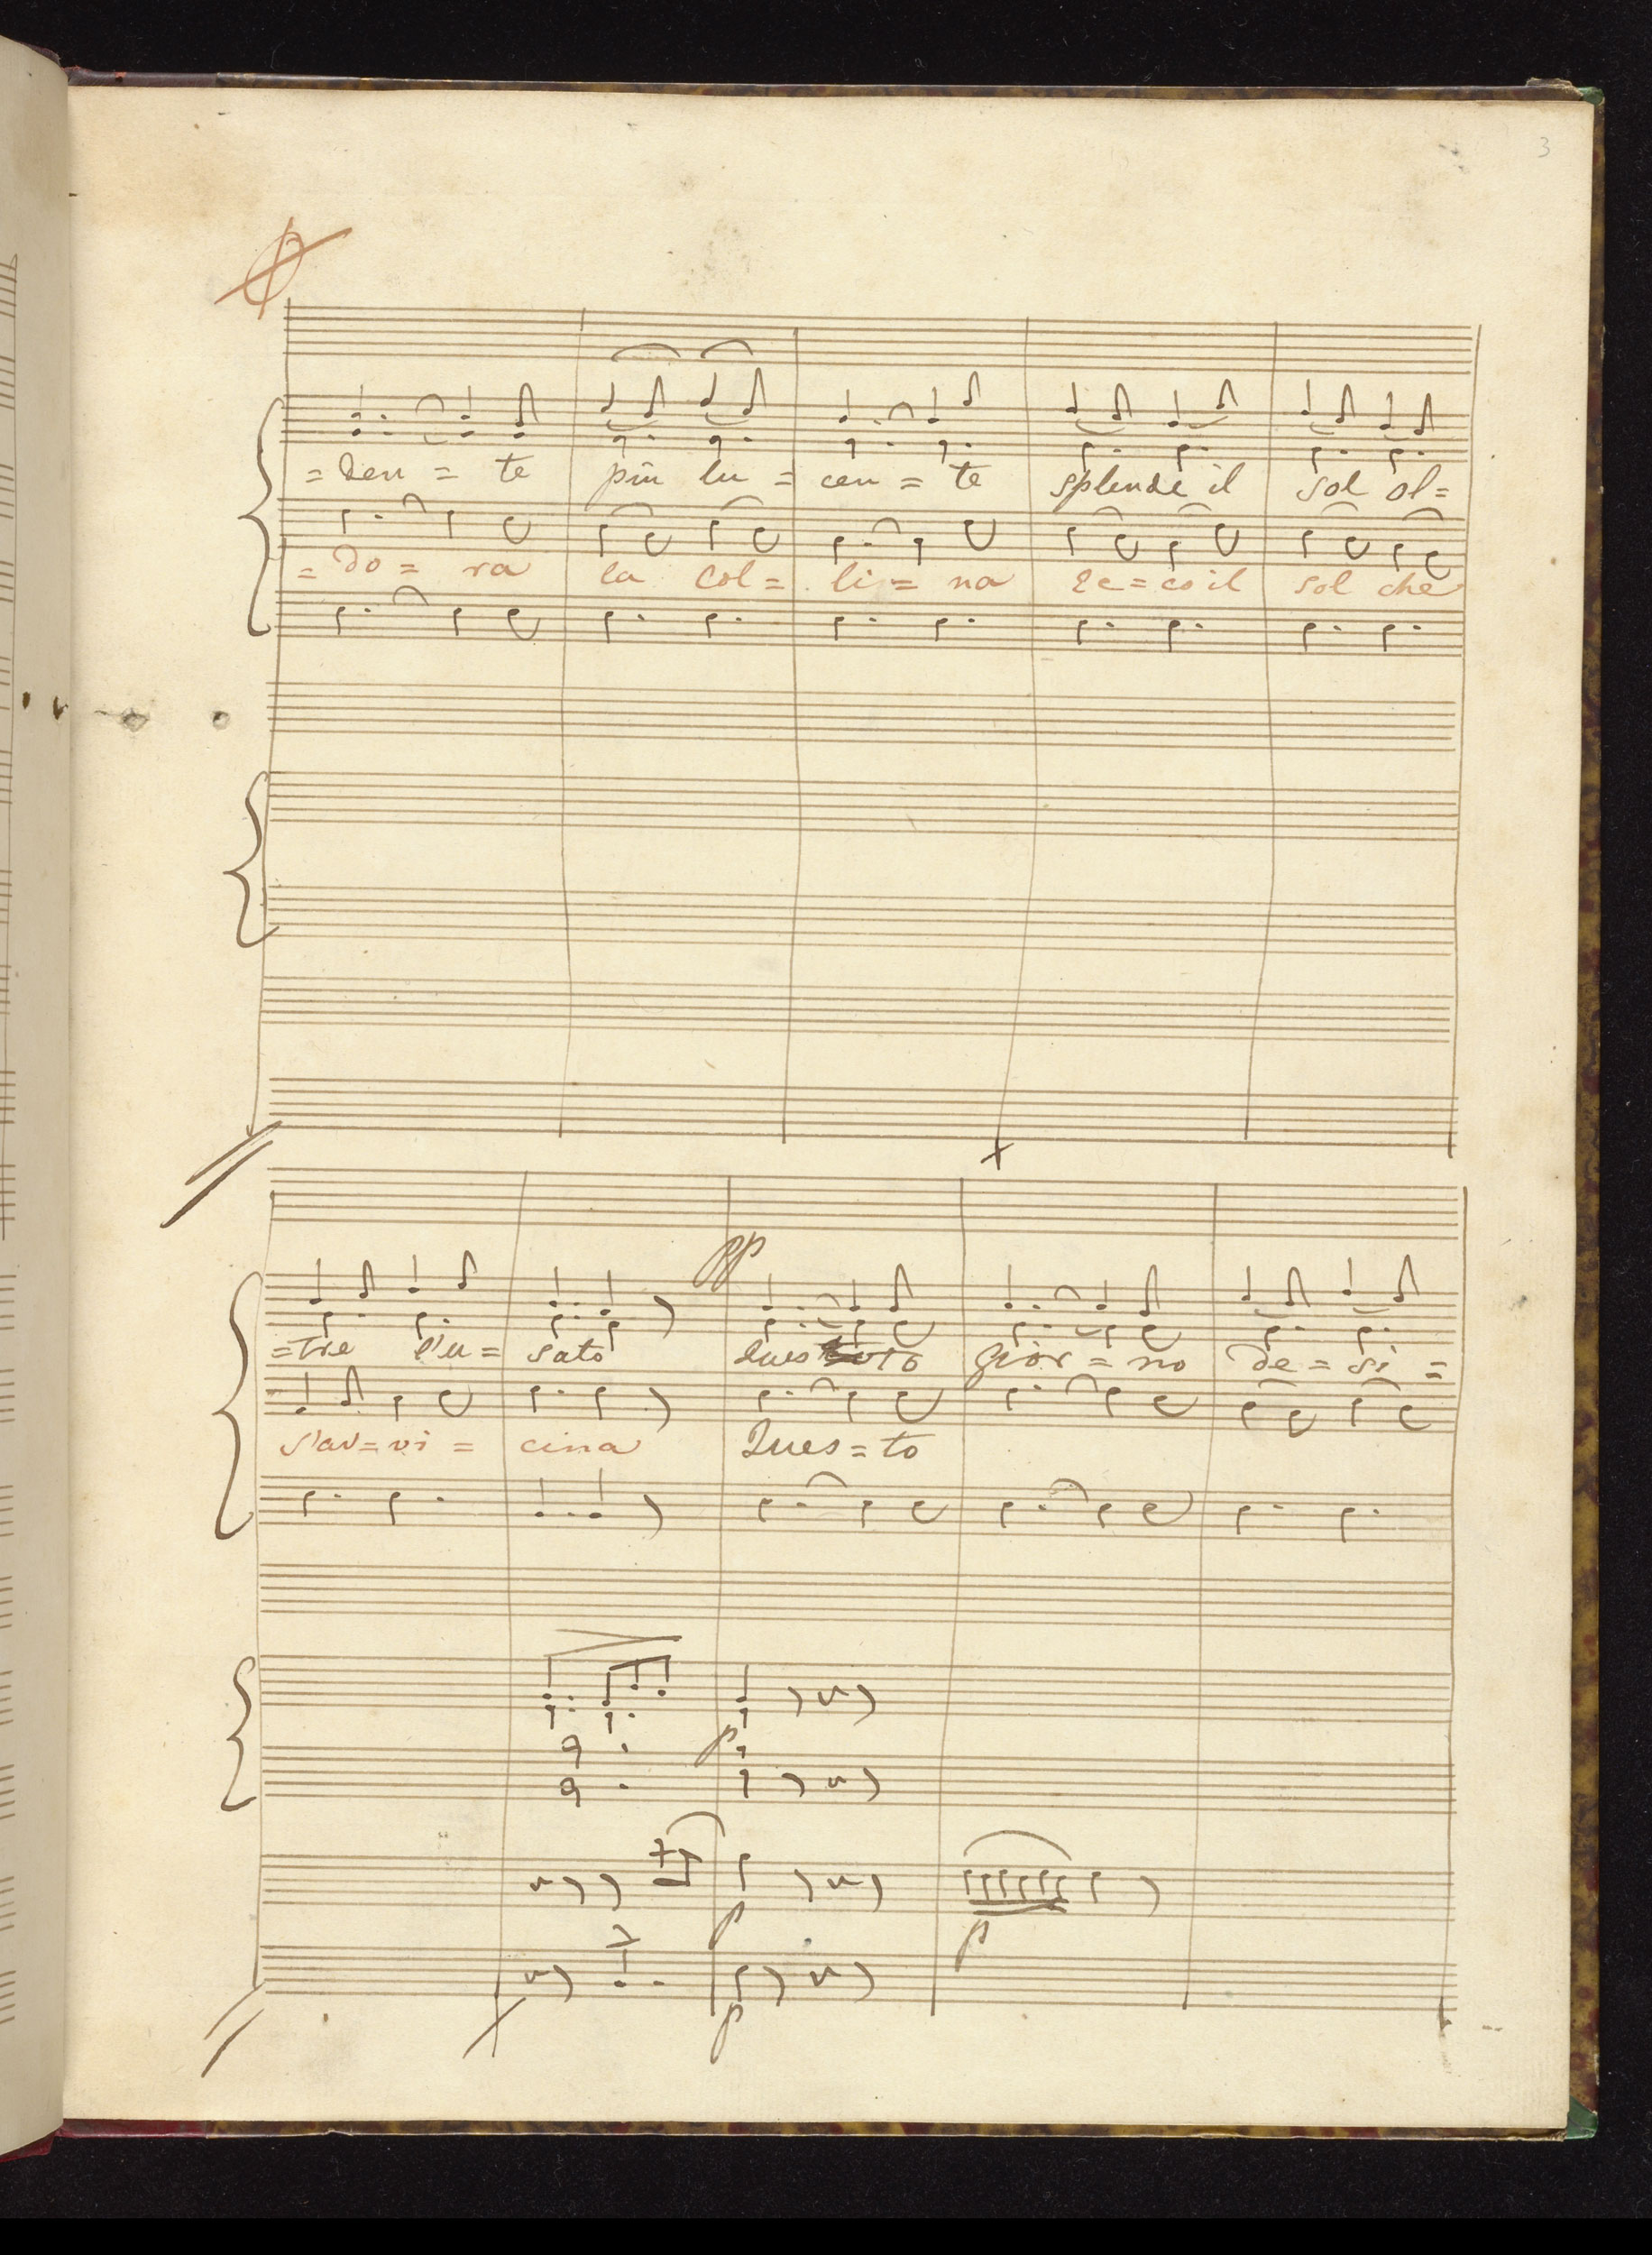 3
=den = te piu lu = cen = te splende il sol ol=
=do = ra la Col = li = na Ec = co il sol che
pp
=tre l'u = sato Questo gior = no de = si =
s'av = vi = cina Ques = to
p
p
p
p